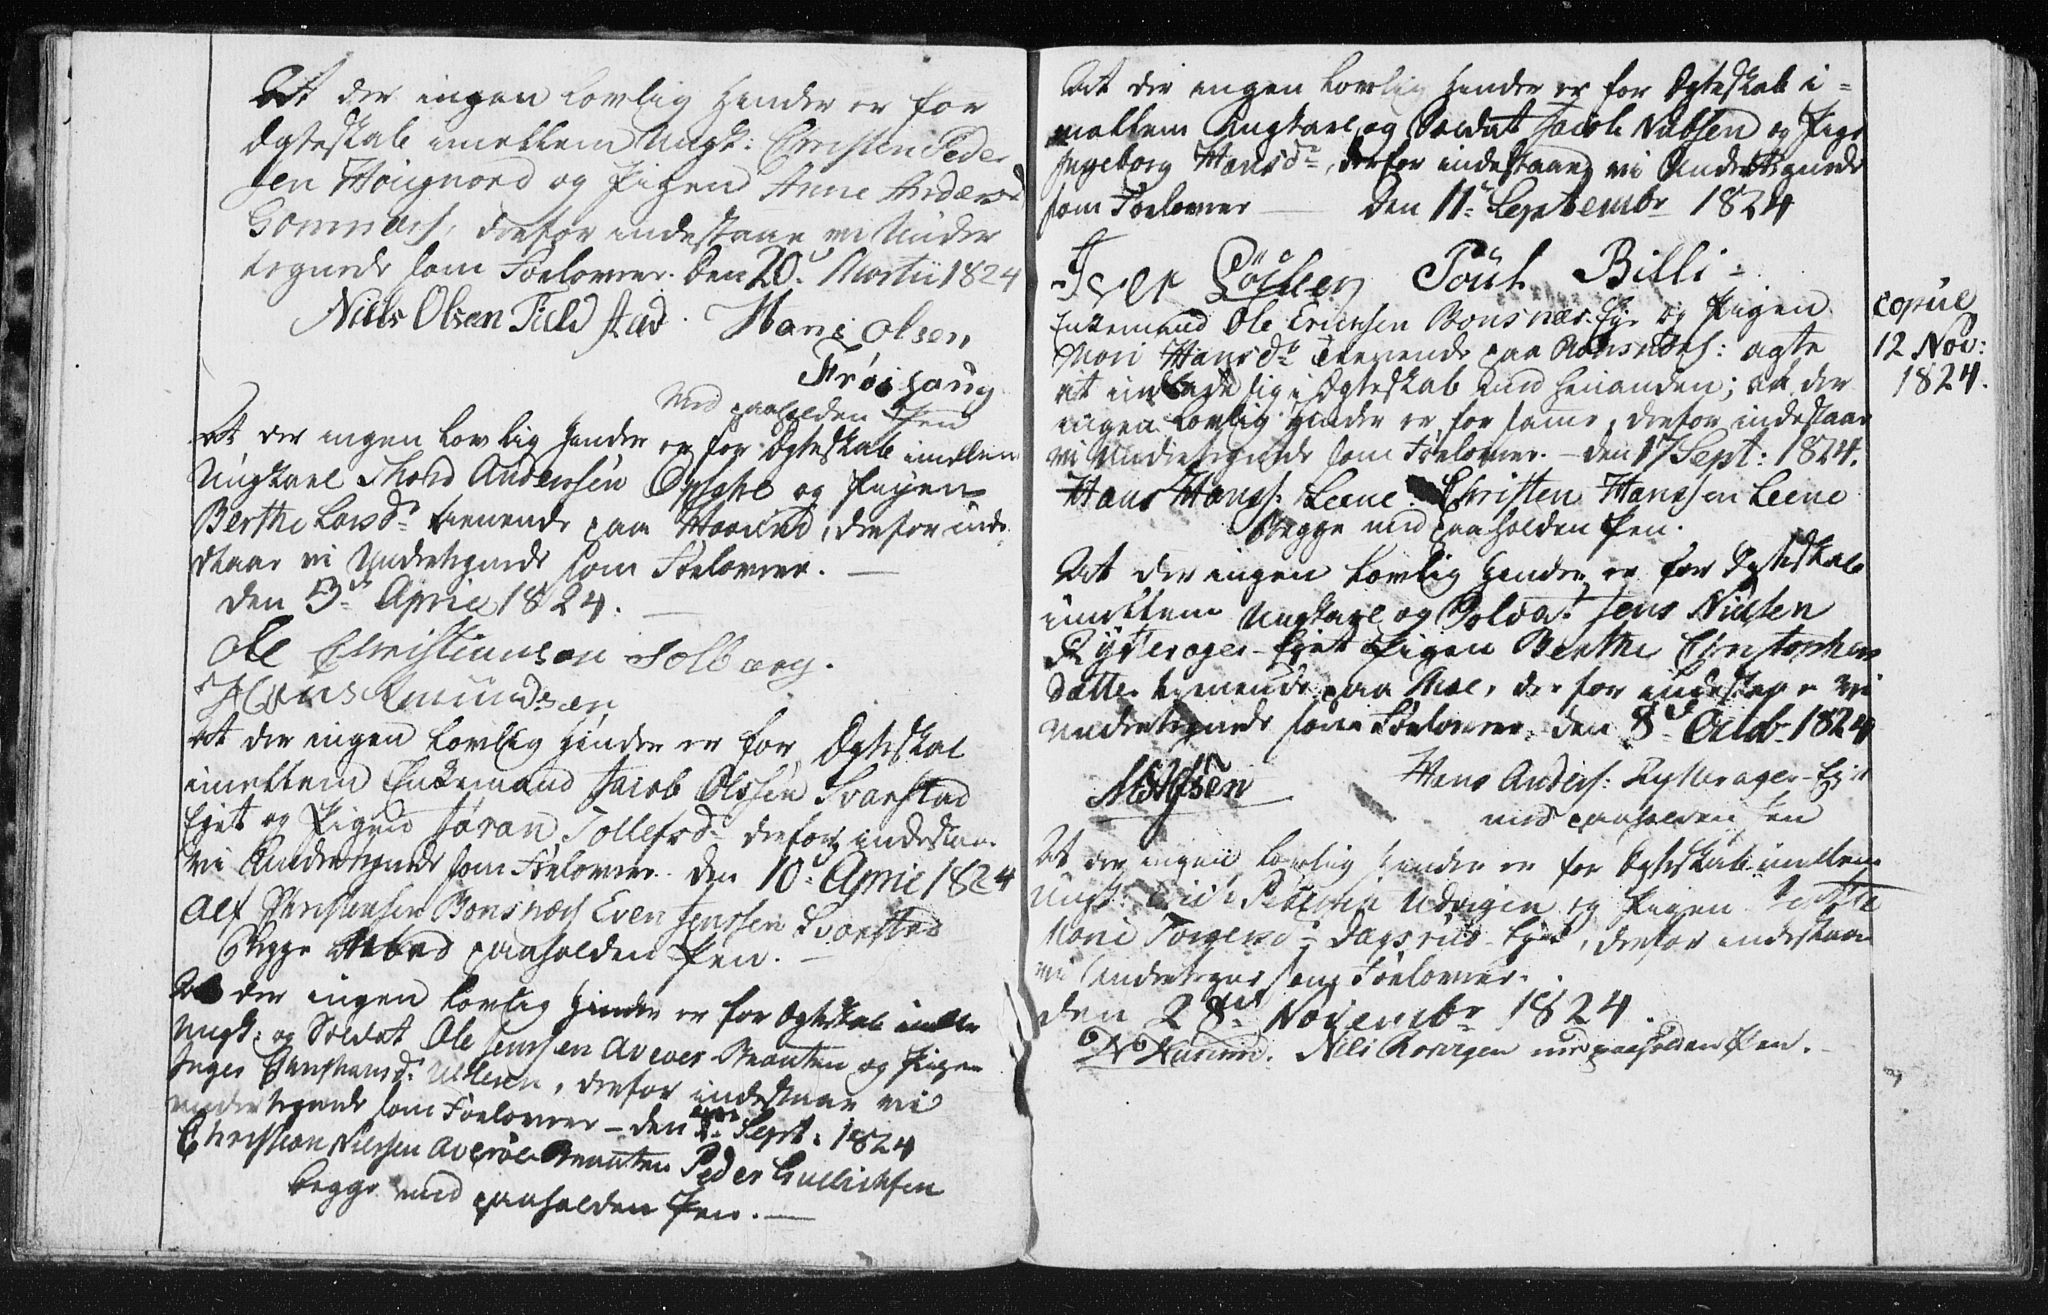 At der ingen lovlig Hinder er for
Ægteskab imellem Ungk: Christen Peder
sen Høignord og Pigen Anne Andersd
derfor indestaae vi Under
tegnede som Forlovere. Den 20. Martii 1824
Niels Olsen Field stad. Hans Olsen
Frøishaug
Med paaholden Pen
At der ingen lovlig Hinder er for Ægteskab imellem
Ungkarl Thord Andersen Opsahl og Pigen
Berthe Larsdr tienende paa derfor inde
staae vi Undertegnede som Forlovere. —
Den 3de April 1824. —
Ole Christiansen Solberg.
Hans Amundsen
At der ingen lovlig Hinder er for Ægteskab
imellem Enkemand Jacob Olssen Svarstad
Ejet og Pigen Jøran Tollefsd derfor indestaae
vi Undertegnede som Forlovere. Den 10d April 1824
Alf Christensen Bonsnæs Even Jenssen Svarstad
Begge med paaholden Pen. —
At der ingen lovlig Hinder er for Ægteskab imellem
Ungk: og Soldat Ole Jenssen Averøe Braaten og Pigen
Inger Christiansd: derfor indestaae vi
undertegnede som Forlovere — den Sept: 1824
Christian Nilssen Averøe Braaten Peder Gulliksen
begge med paaholden Pen. —
At der ingen lovlig Hinder er for Ægteskab i=
mellem Ungkarl og Soldat Jacob Nielsen og Pige
Ingeborg Hansdr, derfor indestaae vi Undertegnede
som Forlovere — Den 11te Septembr 1824
Iver Poul Billi
Enkemand Ole Ericksen Bonsnæs Eje og Pigen
Mari Hansdr tienende paa Bonsnæs: agte
at indlade sig i Ægteskab med hinanden; at der
ingen lovlig Hinder er for samme, derfor indestaae
vi Undertegnede som Forlovere. — den 17 Sept: 1824.
Hans Hanss: Leene Christen Hanssen Leene
Begge med paaholden Pen.
copul
12 Nov:
1824.
At der ingen lovlig Hinder er for Ægteskab
imellem Ungkarl og Soldat Jens Nielsen
Rytterager Ejet Pigen Berthe Christophers
datter tienende paa Moe, derfor indestaae vi
undertegnede som Forlovere, den 8d Octob. 1824
Hans Anders: Rytterager-Ejet
med paaholden Pen
At der ingen lovlig Hinder er for Ægteskab imellem
Ungk: Erick Pedersen Udvigen og Pigen
Marie Torgersd Dagsrud Ejet, derfor indestaae
vi Undertegnede som Forlovere.
den 28de Novembr 1824.
Nils med paaholden Pen. —